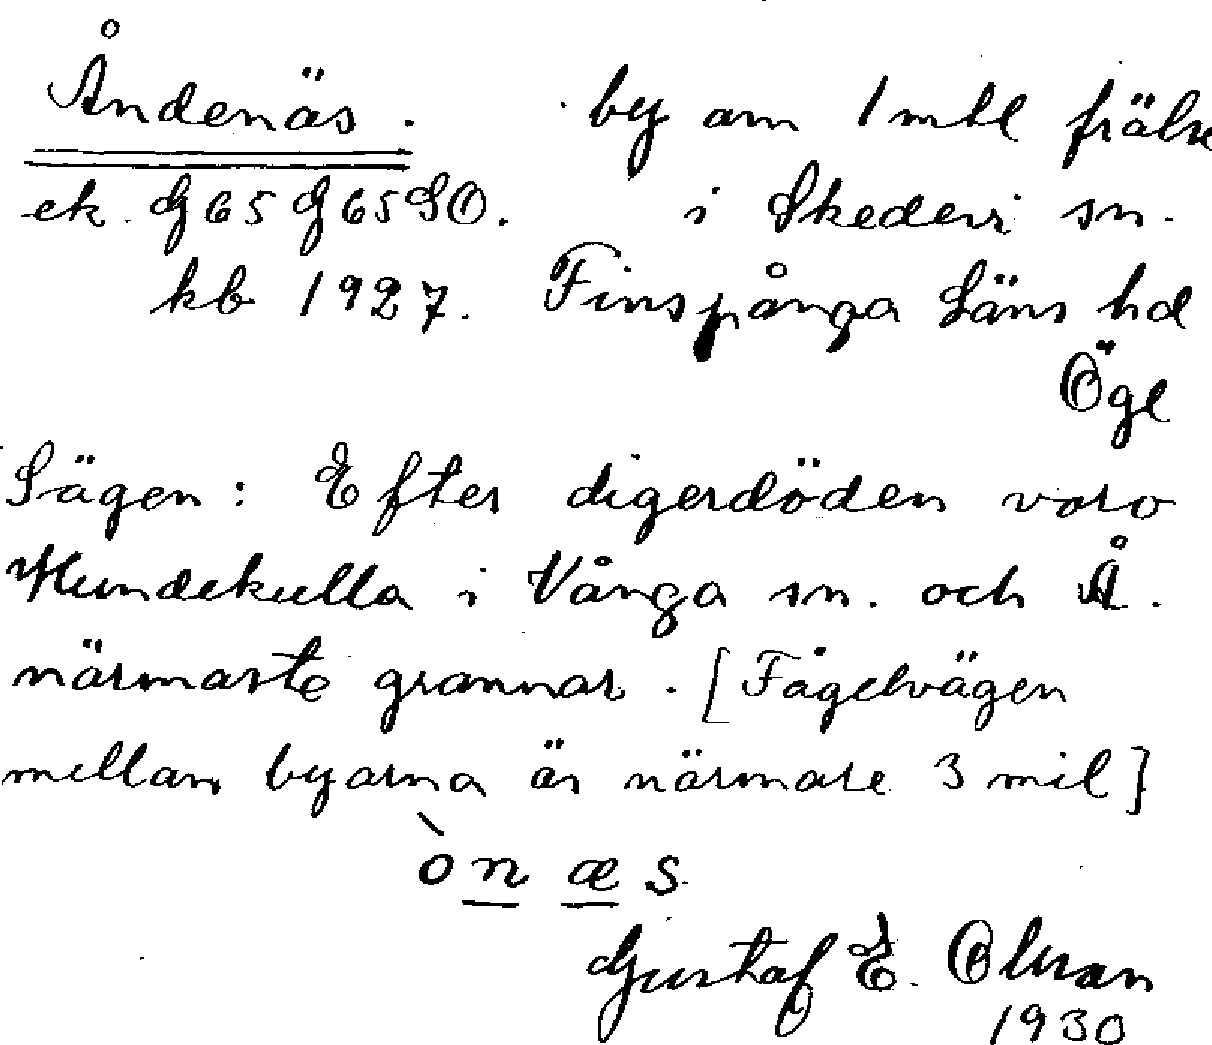 Åndenäs. by om 1 mtl frälse
ek. G65 G65SO. i Skedevi sn.
kb 1927. Finspånga Läns hd
Ögl
Sägen: Efter digerdöden voro
Hundekulla i Vånga sn. och Å.
närmaste grannar. [Fågelvägen
mellan byarna är närmare 3 mil]
ònæs
Gustaf E. Olsson
1930